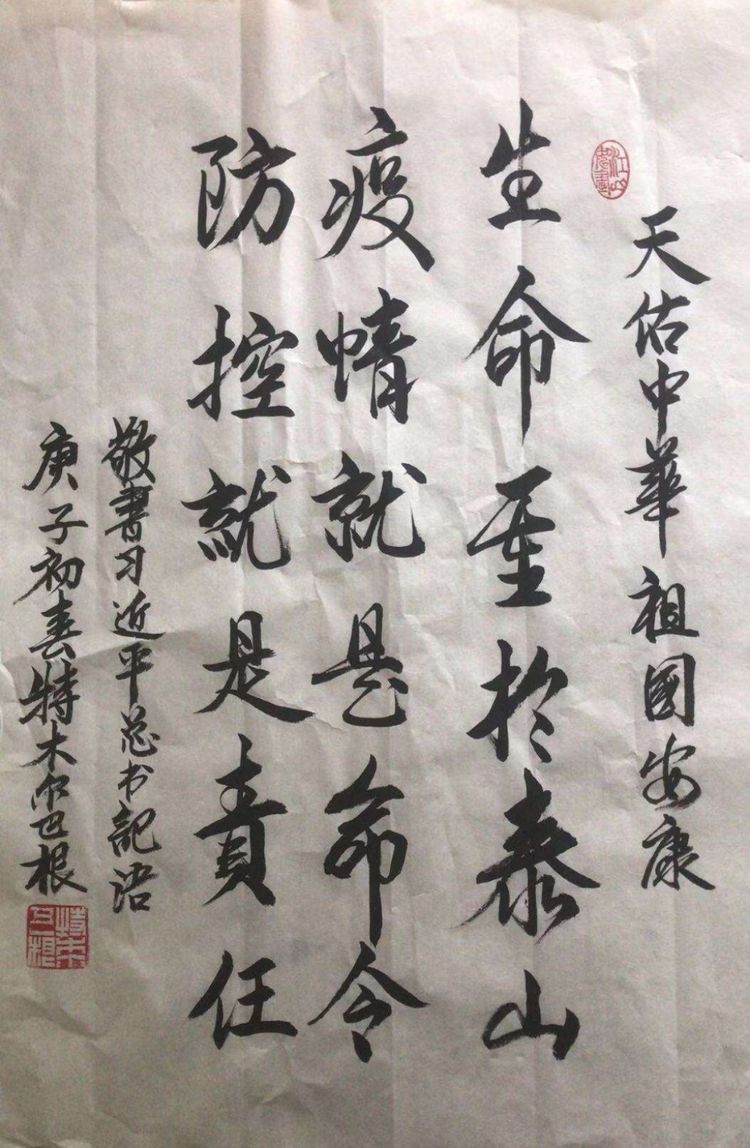 天佑中華祖國安康
生命重於泰山
疫情就是命令
防控就是責任
敬書习近平总书記语
庚子初春特木尔巴根